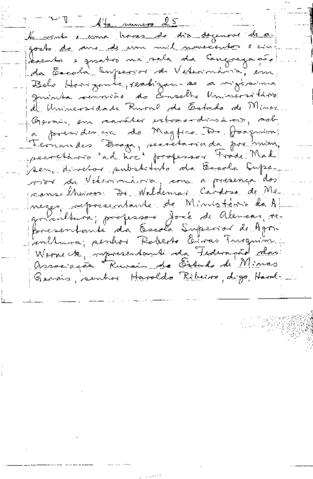 Ata número 25
Às vinte e uma horas do dia dezenove de a-
gosto do ano de um mil novecentos e cin-
coenta e quatro na sala da Congregação
da Escola Superior de Veterinária, em
Belo Horizonte, realizou-se a vigésima
quinta reunião do Conselho Universitário
da Universidade Rural do Estado de Minas
Gerais, em caráter extraordinário, sob
a presidência do Magfico. Dr. Joaquim
Fernandes Braga, secretariada por mim,
secretário "ad hoc" professor Fred. Mad-
sen, diretor substituto da Escola Supe-
rior de Veterinária, com a presença dos
conselheiros: Dr. Waldemar Cardoso de Me-
nezes, representante do Ministério da A-
gricultura; professor José de Alencar, re-
presentante da Escola Superior de Agri-
cultura; senhor Roberto Eiras Furquim
Werneck, representante da Federação das
Associação Rurais do Estado de Minas
Gerais, senhor Haroldo Ribeiro, digo, Harol-